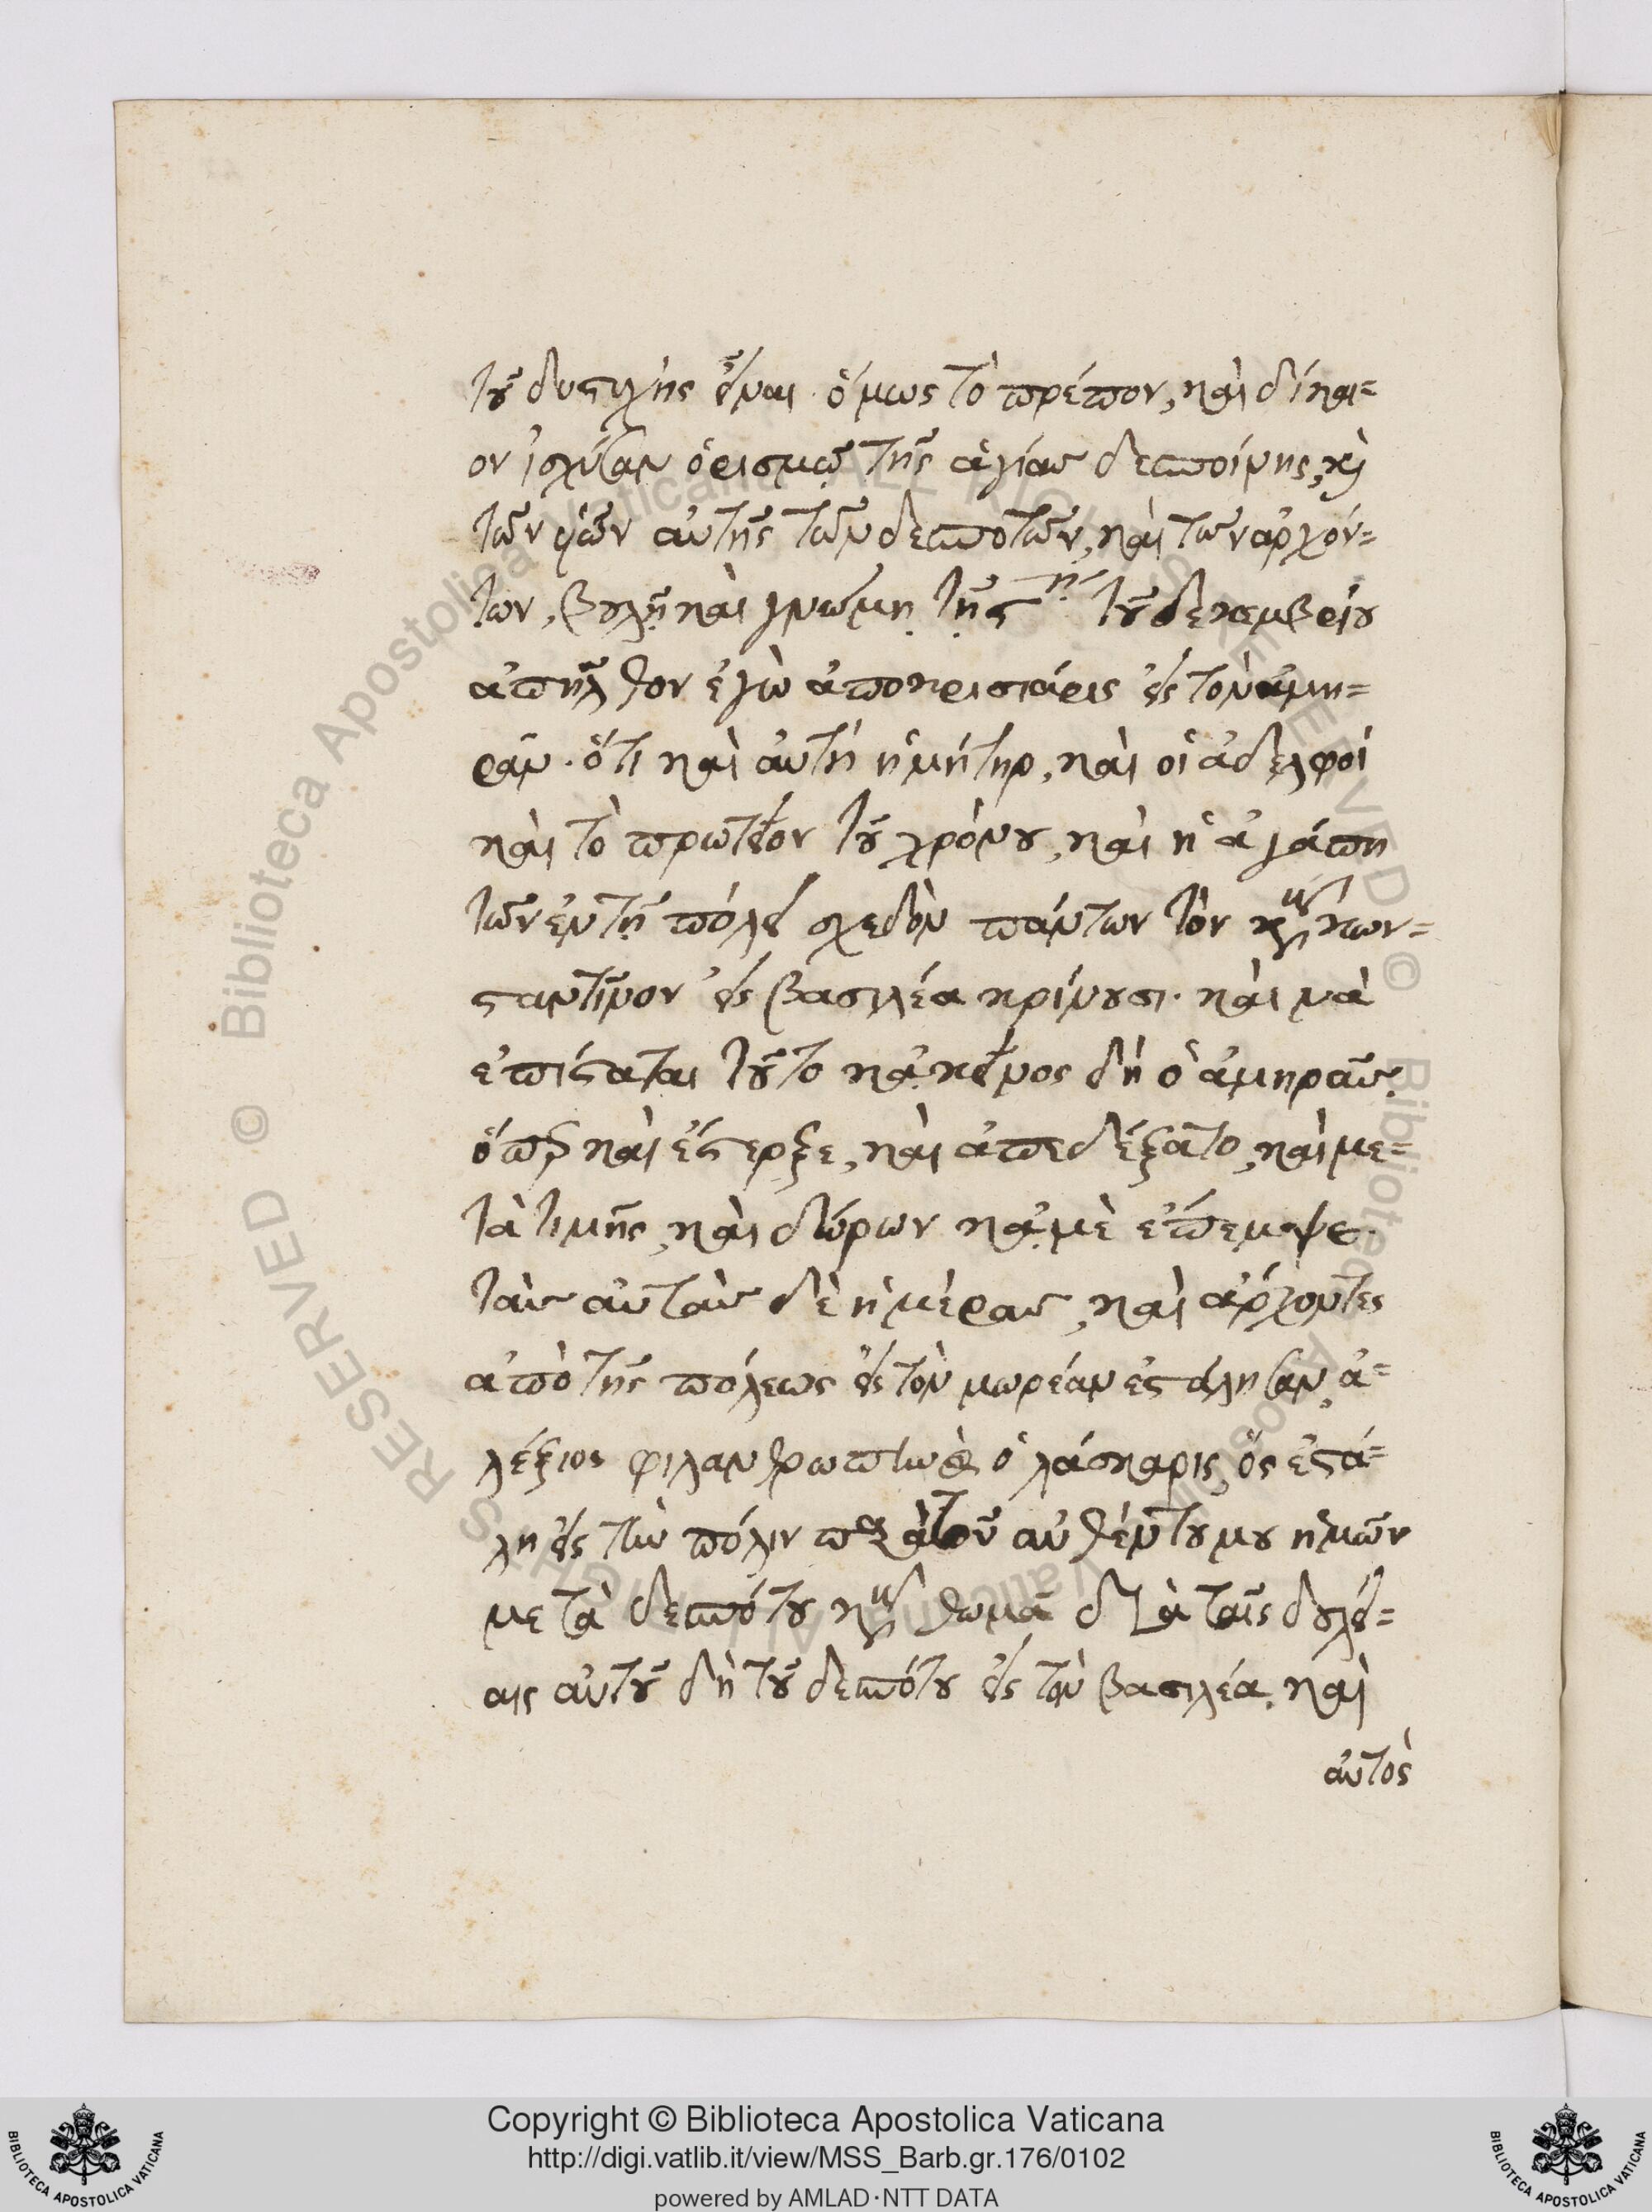 τοῦ δυστυχὴς εἶναι· ὅμως τὸ πρέπον, καὶ δίκαι=
ον ἰσχῦσαν ὁρισμῷ τῆς ἁγίας δεσποίνης, καὶ
τῶν ὑιῶν αὐτῆς τῶν δεσποτῶν, καὶ τῶν ἀρχόν=
των, βουλῇ καὶ γνώμῃ τῇ ϛῃ τοῦ δεκεμβρίου
ἀπῆλθον ἐγὼ ἀποκρισιάρις εἰς τὸν ἀμη=
ρᾶν. ὅτι καὶ αὐτὴ ἡ μήτηρ, καὶ οἱ ἀδελφοί
καὶ τὸ πρωτεῖον τοῦ χρόνου, καὶ ἡ ἀγάπη
τῶν ἐν τῇ πόλει σχεδὸν πάντων τὸν κὺρ κων=
σταντῖνον εἰς βασιλέα κρίνουσι. καὶ νὰ
ἐπίσταται τοῦτο κἀκεῖνος δὴ ὁ ἀμηρᾶς.
ὅπερ καὶ ἔστερξε, καὶ ἀπεδέξατο, καὶ με=
τὰ τιμῆς, καὶ δώρων κἀμὲ ἔπεμψε.
τὰς αὐτὰς δὲ ἡμέρας, καὶ ἄρχοντες
ἀπὸ τῆς πόλεως εἰς τὸν μωρέαν ἐστάλησαν, ἀ=
λέξιος φιλανθρωπινὸς ὁ λάσκαρις, ὃς ἐστά=
λη εἰς τὴν πόλιν παρὰ τοῦ αὐθέντου μου ἡμῶν
μετὰ δεσπότου κὺρ θωμᾶ διὰ ταῖς δουλεί=
αις αὐτοῦ δὴ τοῦ δεσπότου εἰς τὸν βασιλέα, καὶ
αὐτὸς
Copyright © Biblioteca Apostolica Vaticana
http://digi.vatlib.it/view/MSS_Barb.gr.176/0102
powered by AMLAD·NTT DATA